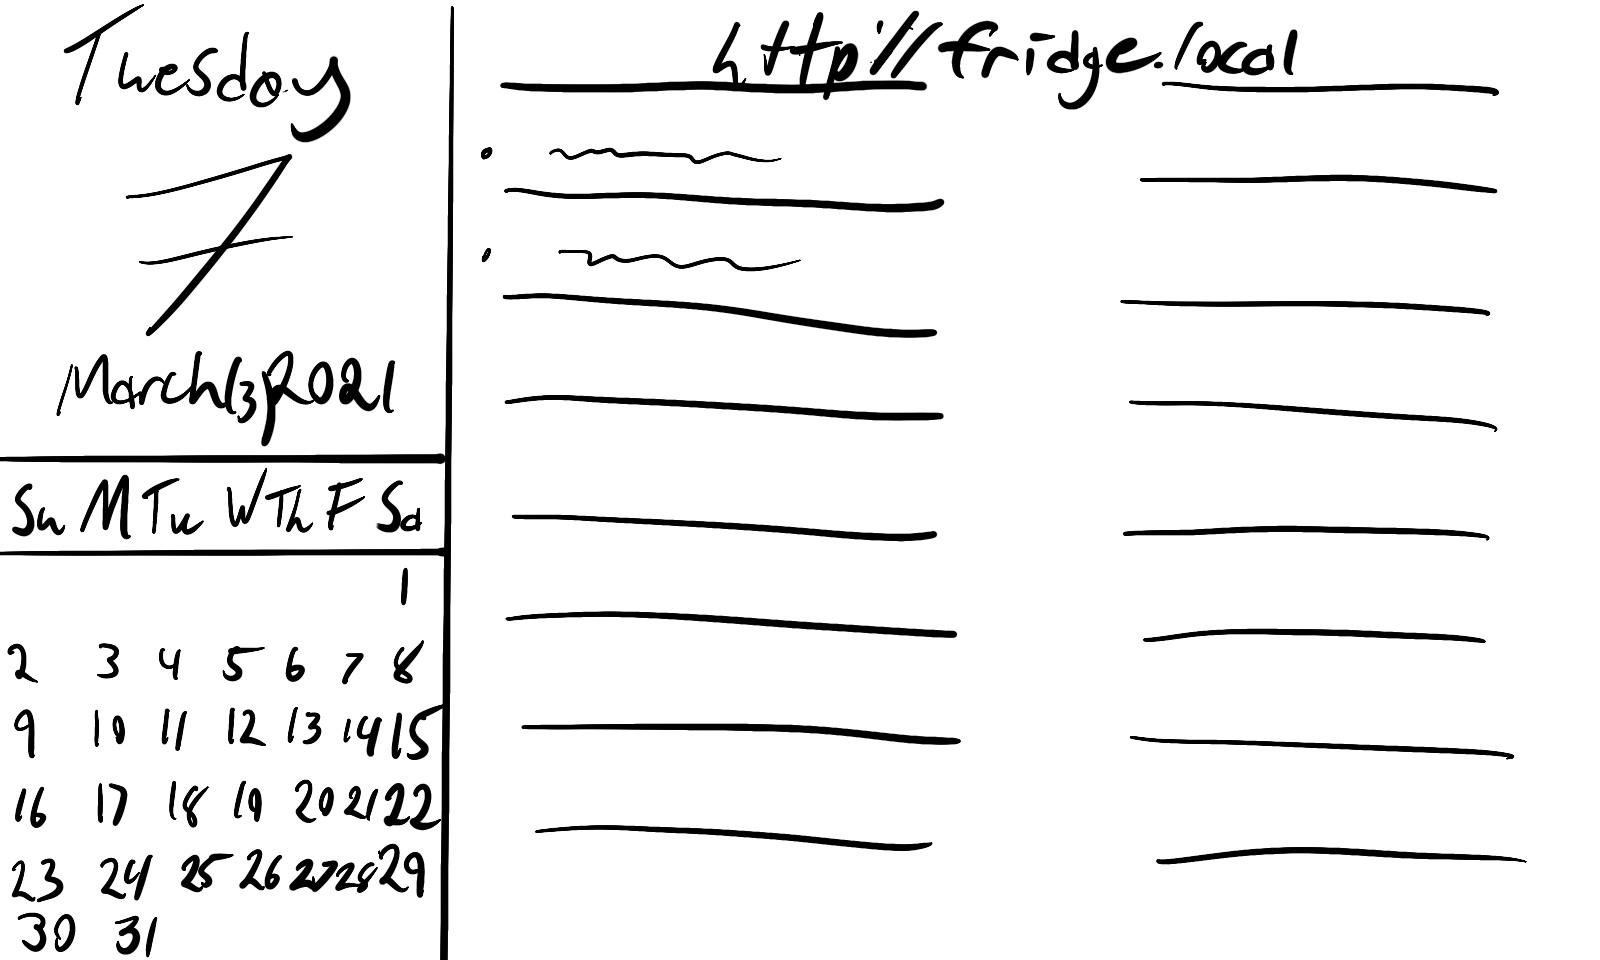 Tuesday
7
March(3), 2021
Su M Tu W Th F Sa
1
2 3 4 5 6 7 8
9 10 11 12 13 14 15
16 17 18 19 20 21 22
23 24 25 26 27 28 29
30 31
http://fridge.local